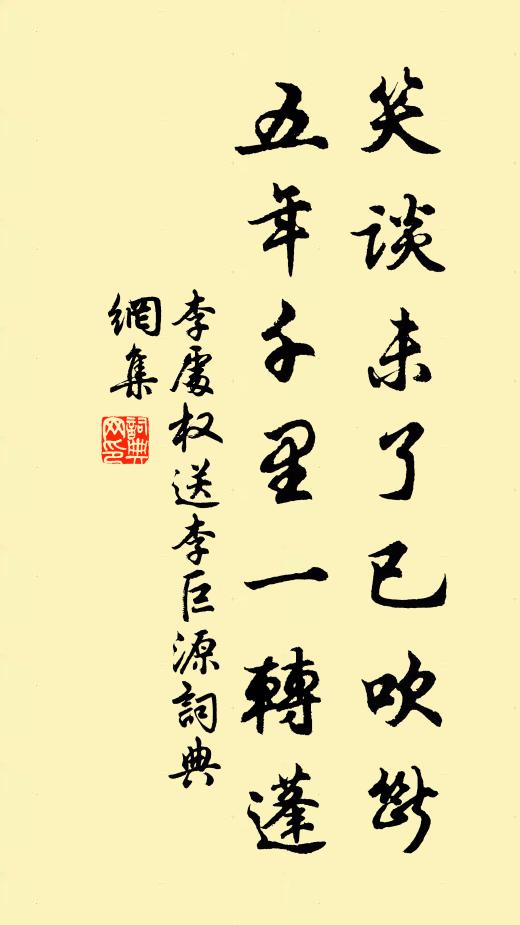 笑談未了已吹斷
五年千里一轉蓬
李處权送李巨源詞典
網集
詞典
网印